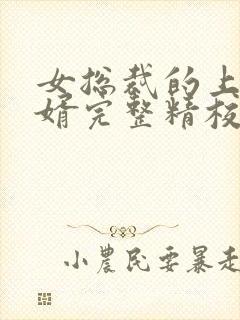 女总裁的上
婿完整精校
小農民要暴走